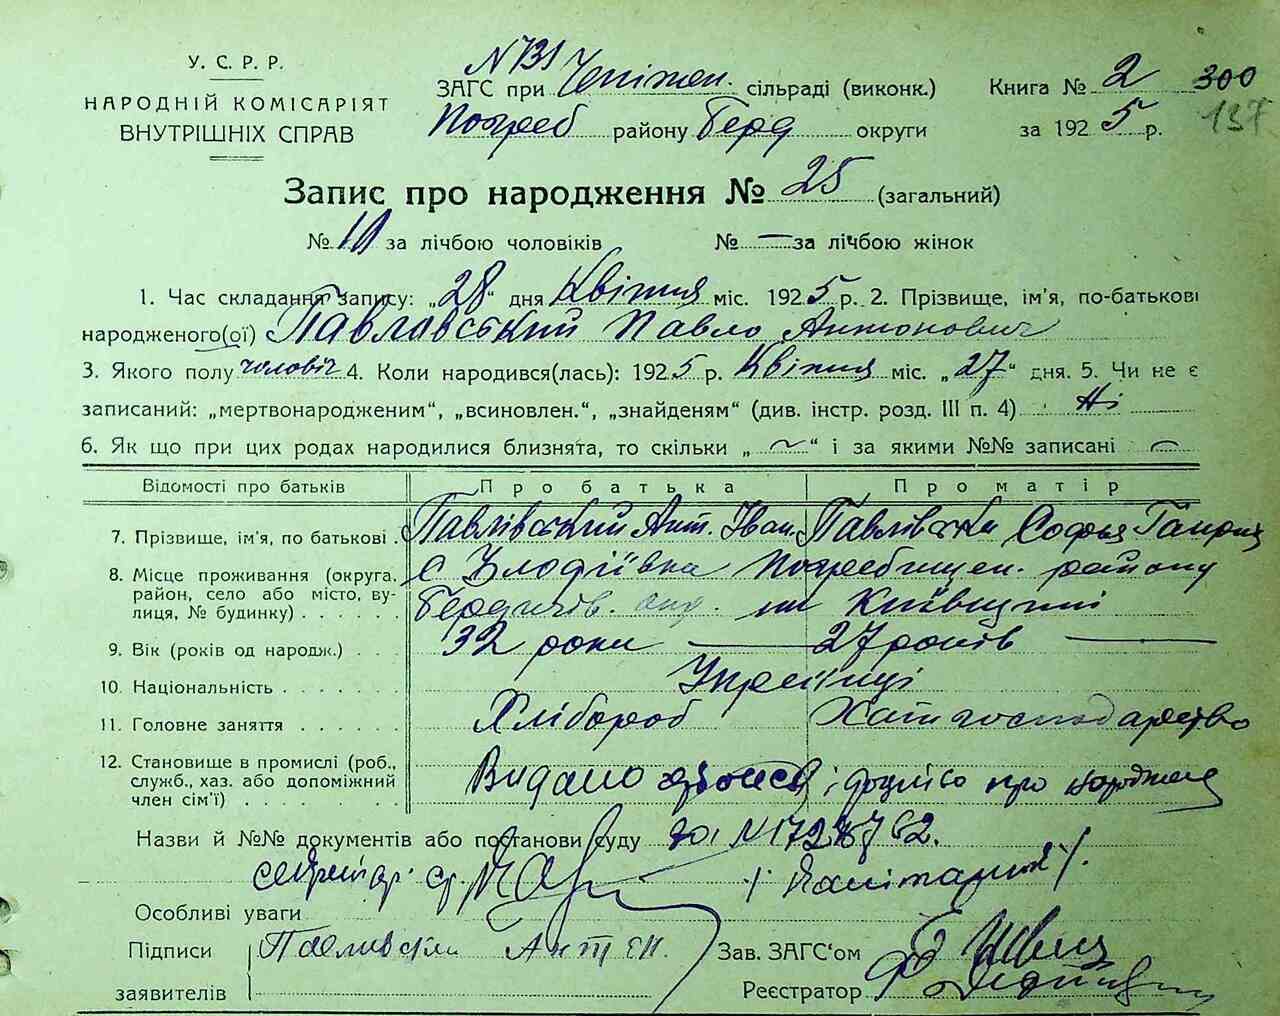 У. С. Р. Р.
НАРОДНІЙ КОМІСАРІЯТ
ВНУТРІШНІХ СПРАВ
N 731
ЗАГС при сільраді (виконк.) Книга № 2 300
Погреб району Берд округи за 1925 р. 137
Запис про народження № 25 (загальний)
№ 10 за лічбою чоловіків № — за лічбою жінок
1. Час складання запису: „28“ дня Квітня міс. 1925 р. 2. Прізвище, ім'я, по-батькові
народженого(ої) Павлавський Павло Антонович
3. Якого полу чоловіч 4. Коли народився(лась): 1925 р. Квітня міс. „27“ дня. 5. Чи не є
записаний: „мертвонародженим“, „всиновлен.“, „знайденям“ (див. інстр. розд. III п. 4) Ні
6. Як що при цих родах народилися близнята, то скільки „ — “ і за якими №№ записані —
Відомості про батьків Про батька Про матір
7. Прізвище, ім'я, по батькові Павлівський Ант. Іван. Павлівська Софья
8. Місце проживання (округа, район, село або місто, вулиця, № будинку) с. Погребищен. району
Бердичів. на Київщині
9. Вік (років од народж.) 32 роки — 27 років —
10. Національність Українці
11. Головне заняття Хлібороб Хатн господарство
12. Становище в промислі (роб., служб., хаз. або допоміжний член сім'ї) Видано і про народження
Назви й №№ документів або постанови суду за N
секретар
Особливі уваги
Підписи Павливский Антон Зав. ЗАГС'ом
заявителів Реєстратор